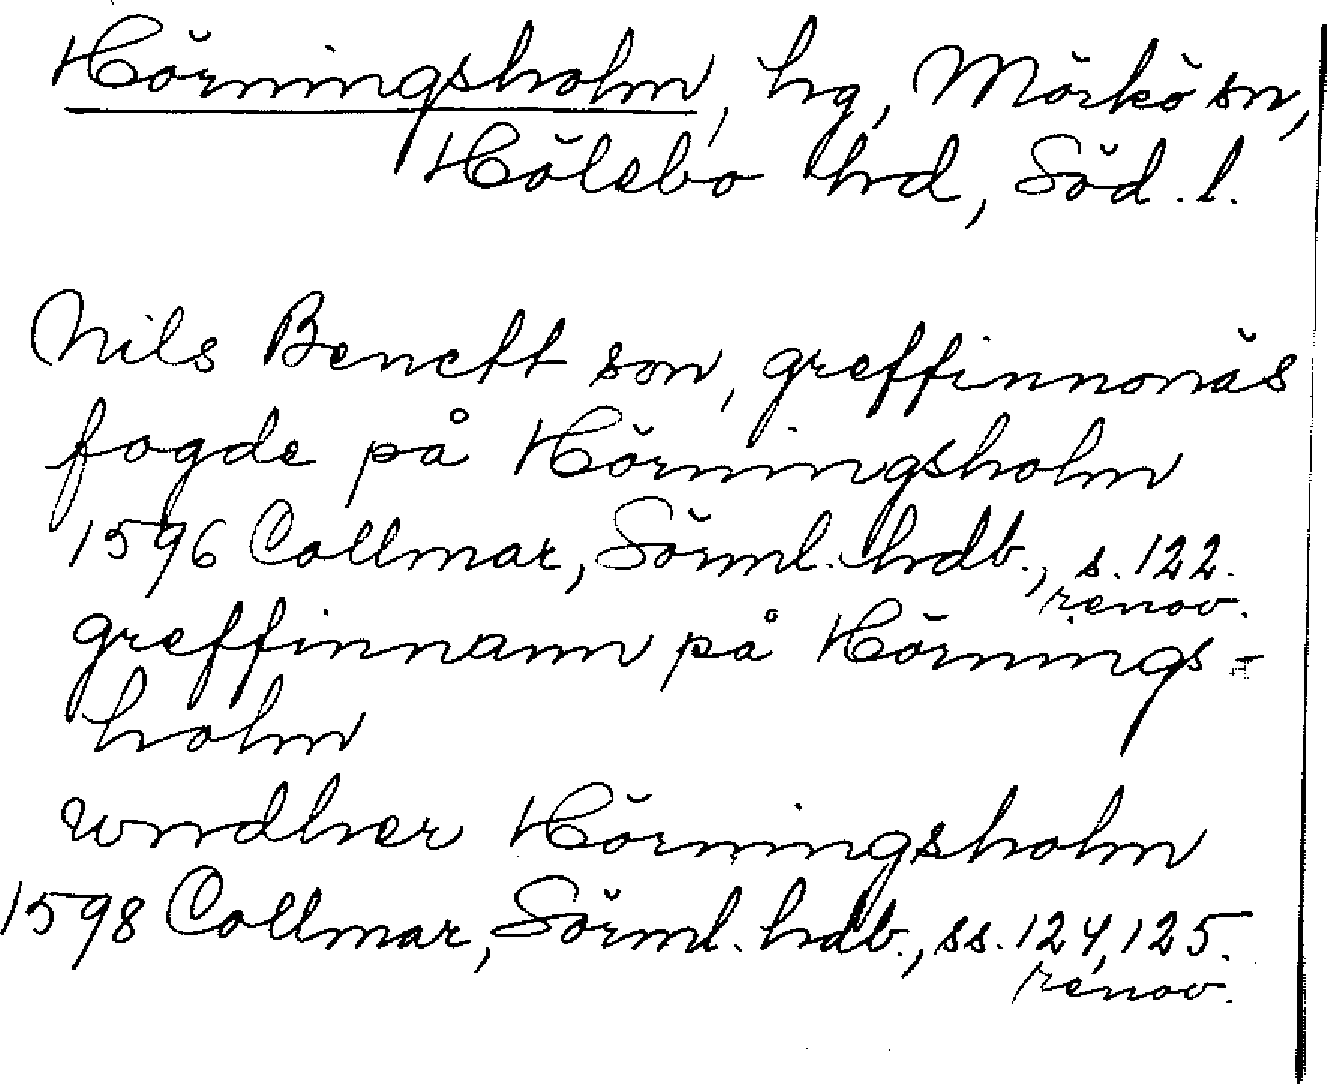 Hörningsholm, hg, Mörkö sn,
Hölebo hrd, Söd. l.
Nils Benctt son, greffinnonäs
fogde på Hörningsholm
1596 Collmar, Sörml. hdb., s. 122.
renov.
greffinnann på Hörnings-
holm
wndher Hörningsholm
1598 Collmar, Sörml. hdb., ss. 124, 125.
renov.